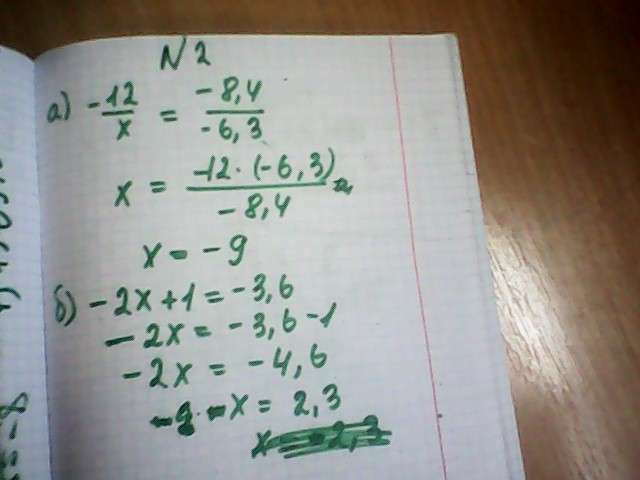 N 2
а) -12/x = -8,4/-6,3
x = -12·(-6,3)/-8,4 =
x = -9
б) -2x+1 = -3,6
-2x = -3,6-1
-2x = -4,6
x = 2,3